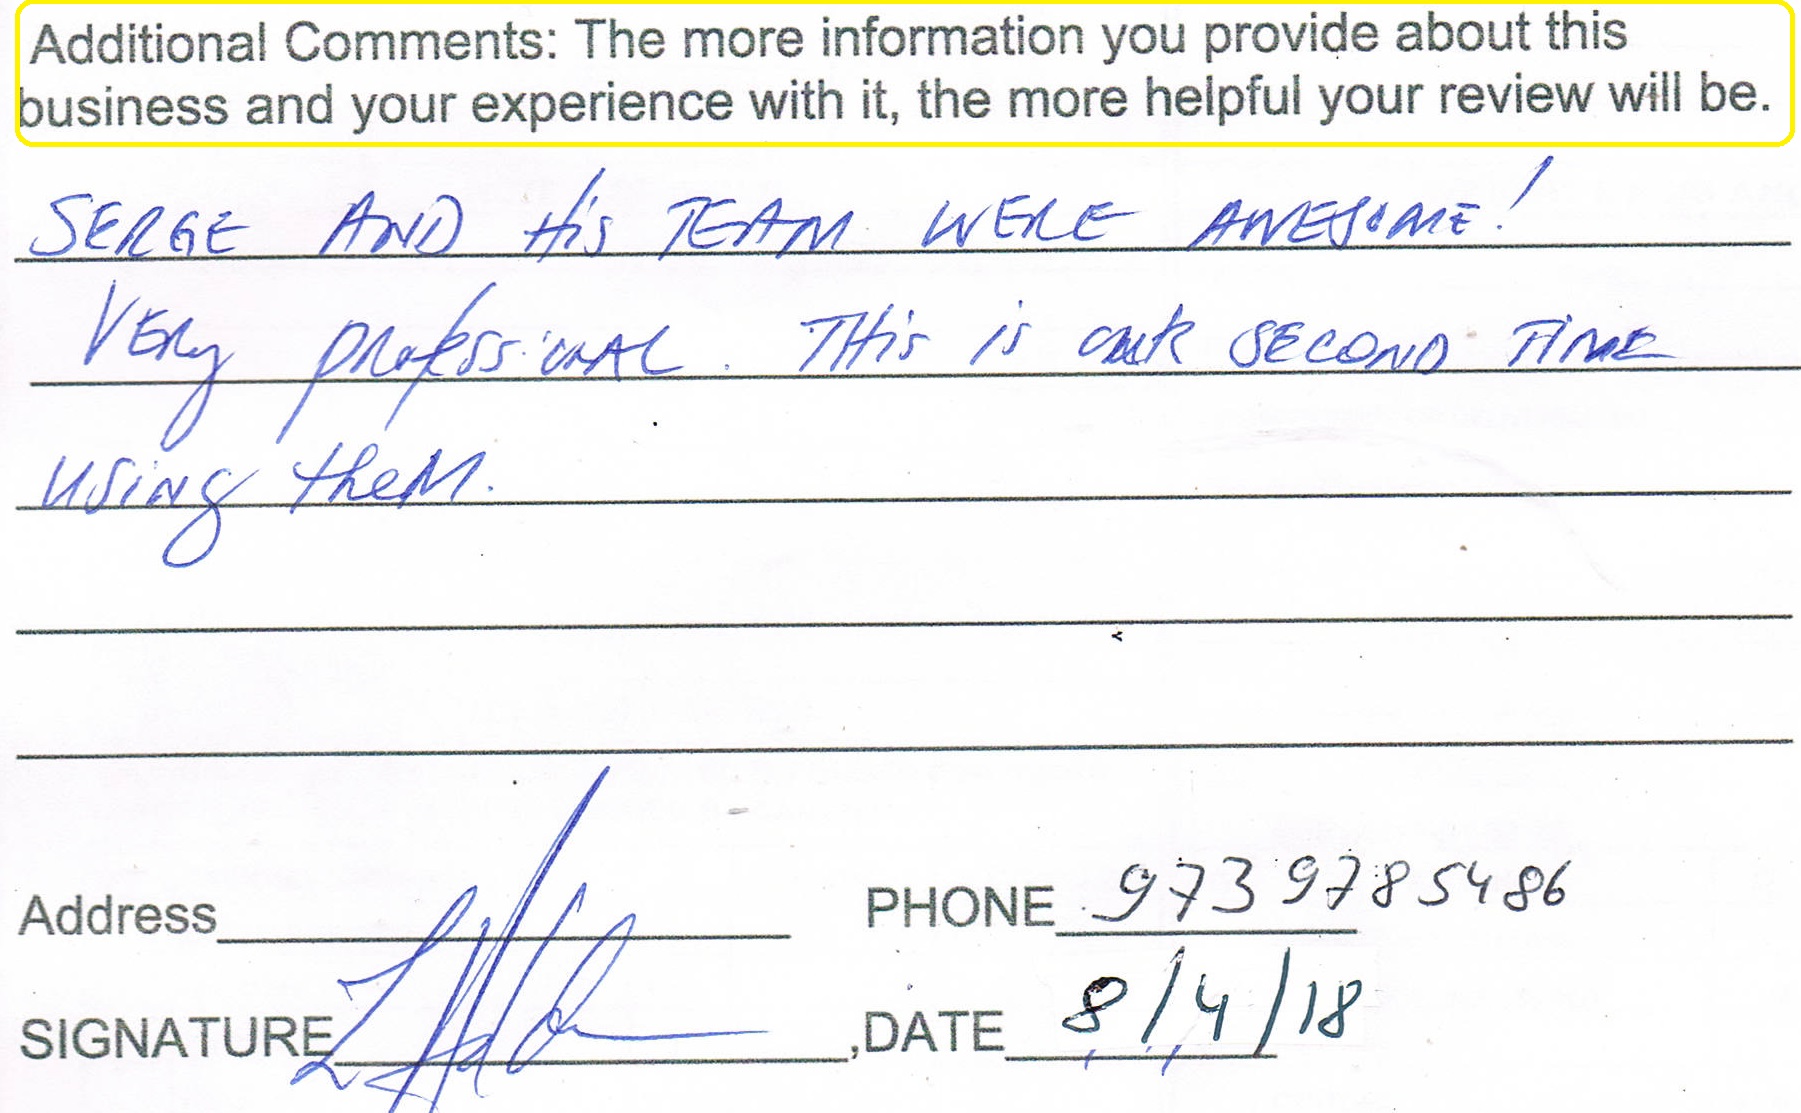 Additional Comments: The more information you provide about this
business and your experience with it, the more helpful your review will be.
SERGE AND His TEAM WERE AWESOME!
VERy professional. THis is our SECOND TIME
using theM.
Address PHONE 9739785486
SIGNATURE ,DATE 8/4/18